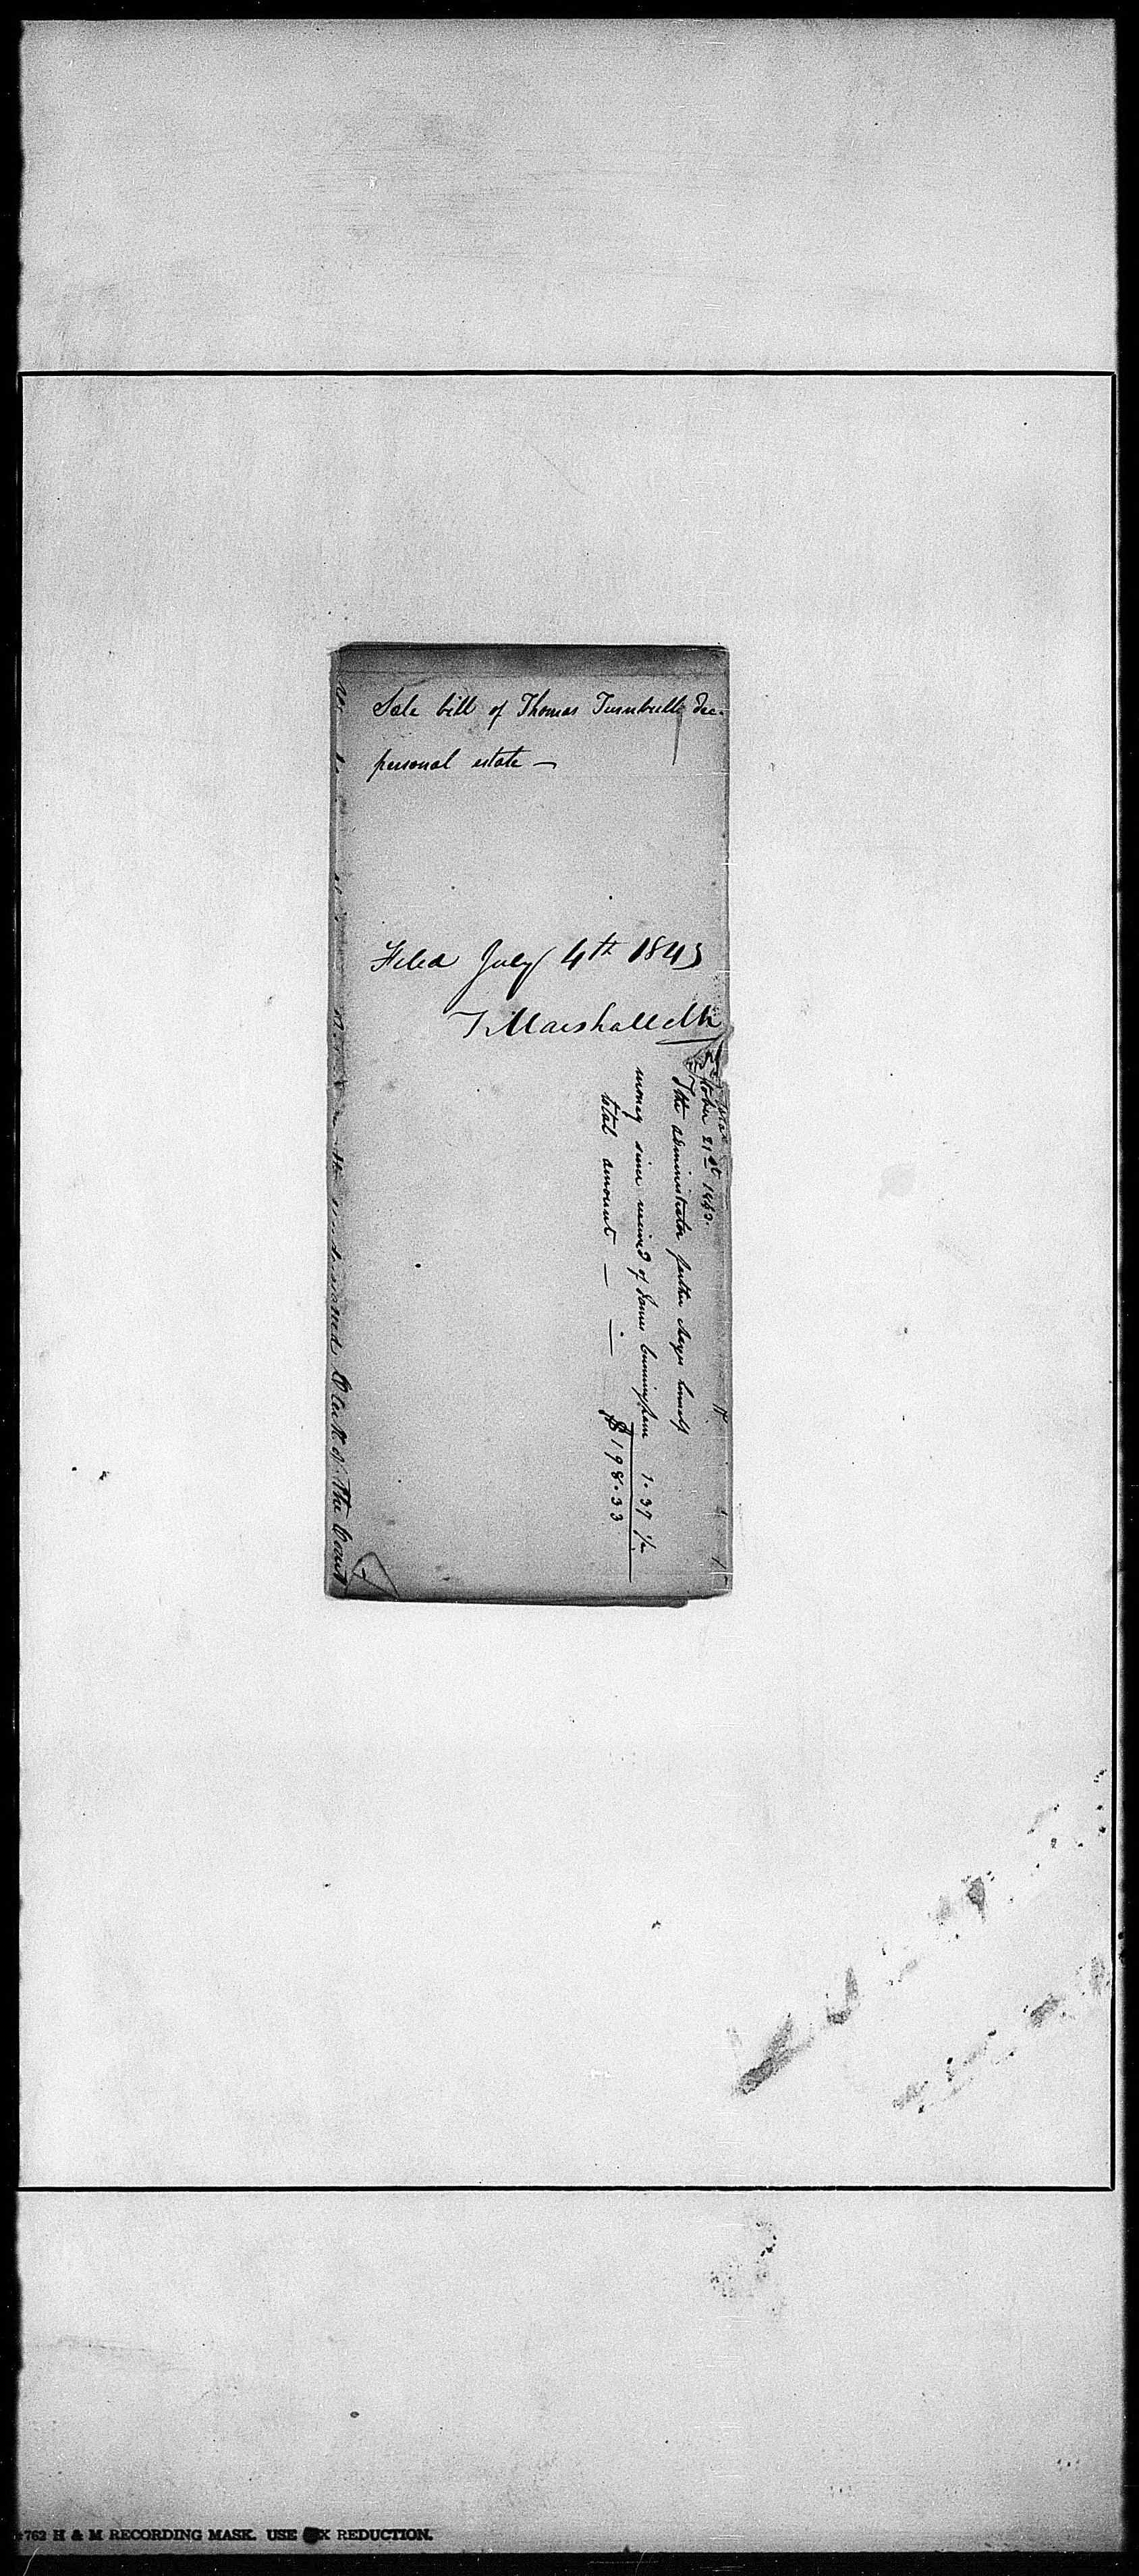 Sale bill of Thomas Turnbull dec.
personal estate —
Filed July 4th 1843
T. Marshall Clk
October 21st 1843.
The administrator further charges himself
money since received of James Cunningham 1.37 1/2
total amount — — $198.33
Clerk of the Court
762 H & M RECORDING MASK. USE X REDUCTION.